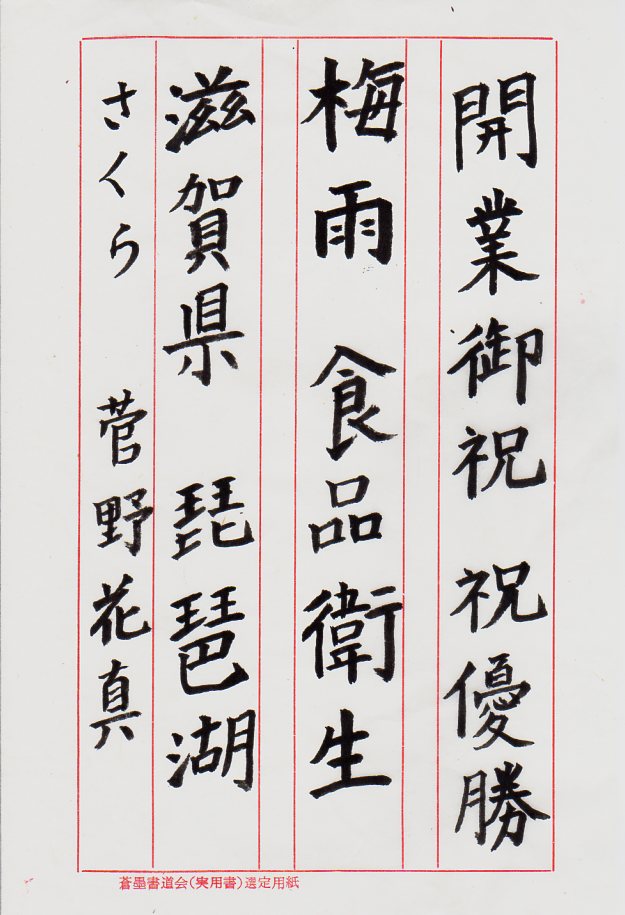 開業御祝 祝優勝
梅雨 食品衛生
滋賀県 琵琶湖
さくら 菅野花真
蒼墨書道会(実用書)選定用紙